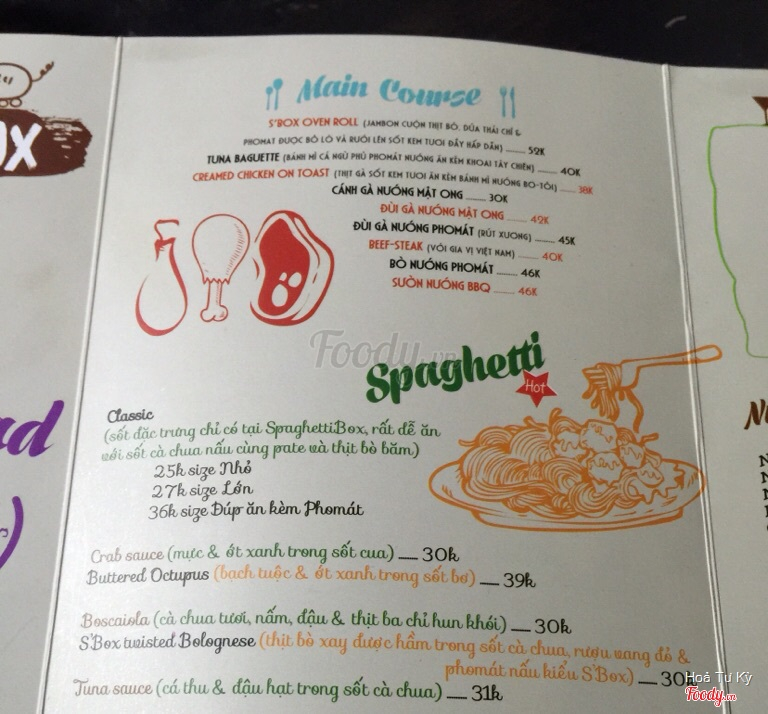 Main Course
S'BOX OVEN ROLL (JAMBON CUỘN THỊT BÒ, DỨA THÁI CHỈ &
PHOMAT ĐƯỢC BỎ LÒ VÀ RƯỚI LÊN SỐT KEM TƯƠI ĐẦY HẤP DẪN) 52K
TUNA BAGUETTE (BÁNH MÌ CÁ NGỪ PHỦ PHOMÁT NƯỚNG ĂN KÈM KHOAI TÂY CHIÊN) 40K
CREAMED CHICKEN ON TOAST (THỊT GÀ SỐT KEM TƯƠI ĂN KÈM BÁNH MÌ NƯỚNG BƠ-TỎI) 38K
CÁNH GÀ NƯỚNG MẬT ONG 30K
ĐÙI GÀ NƯỚNG MẬT ONG 42K
ĐÙI GÀ NƯỚNG PHOMÁT (RÚT XƯƠNG) 45K
BEEF-STEAK (VỚI GIA VỊ VIỆT NAM) 40K
BÒ NƯỚNG PHOMÁT 46K
SƯỜN NƯỚNG BBQ 46K
Foody.vn
Spaghetti
Hot
Classic
(sốt đặc trưng chỉ có tại SpaghettiBox, rất dễ ăn
với sốt cà chua nấu cùng pate và thịt bò băm)
25k size Nhỏ
27k size Lớn
36k size Đúp ăn kèm Phomát
Crab sauce (mực & ớt xanh trong sốt cua) 30k
Buttered Octupus (bạch tuộc & ớt xanh trong sốt bơ) 39k
Boscaiola (cà chua tươi, nấm, đậu & thịt ba chỉ hun khói) 30k
S'Box twisted Bolognese (thịt bò xay được hầm trong sốt cà chua, rượu vang đỏ &
phomát nấu kiểu S'Box) 30k
Tuna sauce (cá thu & đậu hạt trong sốt cà chua) 31k
Hoả Tư Kỳ
Foody.vn